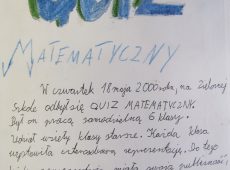 QUIZ
MATEMATYCZNY
W czwartek 18 maja 2000 roku, na Zielonej
Szkole odbył się QUIZ MATEMATYCZNY.
Był on pracą samodzielną 6 klasy.
Udział wzięły klasy starsze. Każda klasa
wystawiła reprezentację. Do tego
miała swoją